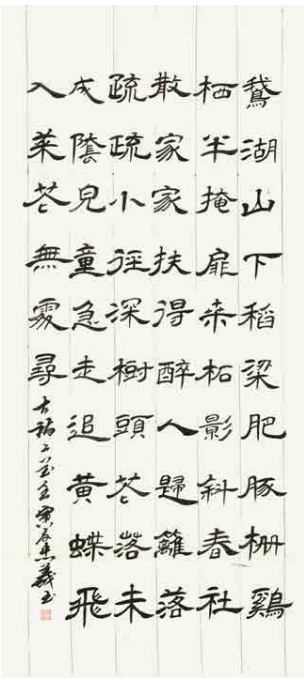 鵝湖山下稻梁肥豚柵鷄
栖半掩扉桒柘影斜春社
散家家扶得醉人歸籬落
疏疏小徑深樹頭花落未
成陰兒童急走追黃蝶飛
入菜花無處尋
古詩二首壬寅春